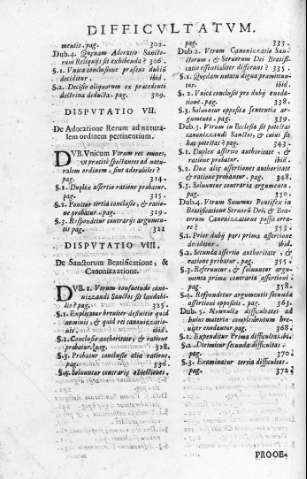 DIFFICVLTATVM.
mentis. pag. 302.
Dub.4. Quænam Adoratio Sancto-
rum Reliquiis sit exhibenda? 306.
§.1. Vnica conclusione præfens dubiũ
deciditur. ibid.
§.2. Decisio aliquorum ex præcedenti
doctrina deducta. pag. 309.
DISPVTATIO VII.
De Adoratione Rerum ad natura-
lem ordinem pertinentium. 314.
DVB. Vnicum Vtrum res omnes,
vt præcisè spectantes ad natu-
ralem ordinem, sint adorabiles?
pag.
§.1. Duplex assertio ratione probatur.
pag. 315.
§.2. Ponitur tertia conclusio, & ratio-
ne probatur. pag. 319.
§.3. Respondetur contrariis argumen-
tis pag. 322
DISPVTATIO VIII.
De Sanctorum Beatificatione, &
Canonizatione.
DVB. 1. Vtrum consuetudo cano-
nizzandi Sanctos sit laudabi-
lis? pag. 325.
§.1. Explicatur breuiter definitio quid
nominis, & quid rei canonizatio-
nis. ibid.
§.2. Conclusio authoritate, & ratione
probatur. pag. 328.
§.3. Probatur conclusio aliis ratione,
pag. 336.
§.4. Soluuntur contrariæ obiectiones.
pag. 335.
Dub.2. Vtrum Canonizatio San-
ctorum, & Seruorum Dei Beatifi-
catio essentialiter differant? 335.
§.1. Quædam notatu digna præmittun-
tur. ibid.
§.2. Vnica conclusio pro dubij resolu-
tione. pag. 338.
§.3. Soluuntur opposita sententia ar-
gumenta. pag. 339.
Dub.3. Vtrum in Ecclesia sit potestas
canonizandi Sanctos, & cuius sit
hæc potestas? pag. 343.
§.1. Duplex assertio authoritate, &
ratione probatur. ibid.
§.2. Duæ aliæ assertiones authoritate
& ratione probantur. pag. 348.
§.3. Soluuntur contraria argumenta.
pag. 350.
Dub.4. Vtrum Summus Pontifex in
Beatificatione Seruorũ Dei, & San-
ctorum Canonizatione possit erra-
re? 353.
§.1. Prior dubij pars prima assertione
deciditur. ibid.
§.2. Secunda assertio authoritate, &
ratione probatur. pag. 355.
§.3. Referuntur, & soluuntur argu-
menta primæ contraria assertioni
pag. 358.
§.4. Respondetur argumentis secundæ
assertioni oppositis. pag. 363.
Dub. 5. Nonnullæ difficultates ad
huius materiæ complementum bre-
uiter enodantur. pag. 368.
§.1. Expenditur Prima difficultas. ibi.
§.2. Dirimitur secunda difficultas.
pag. 370.
§.3. Examinatur tertia difficultas.
pag. 372.
PROOE-